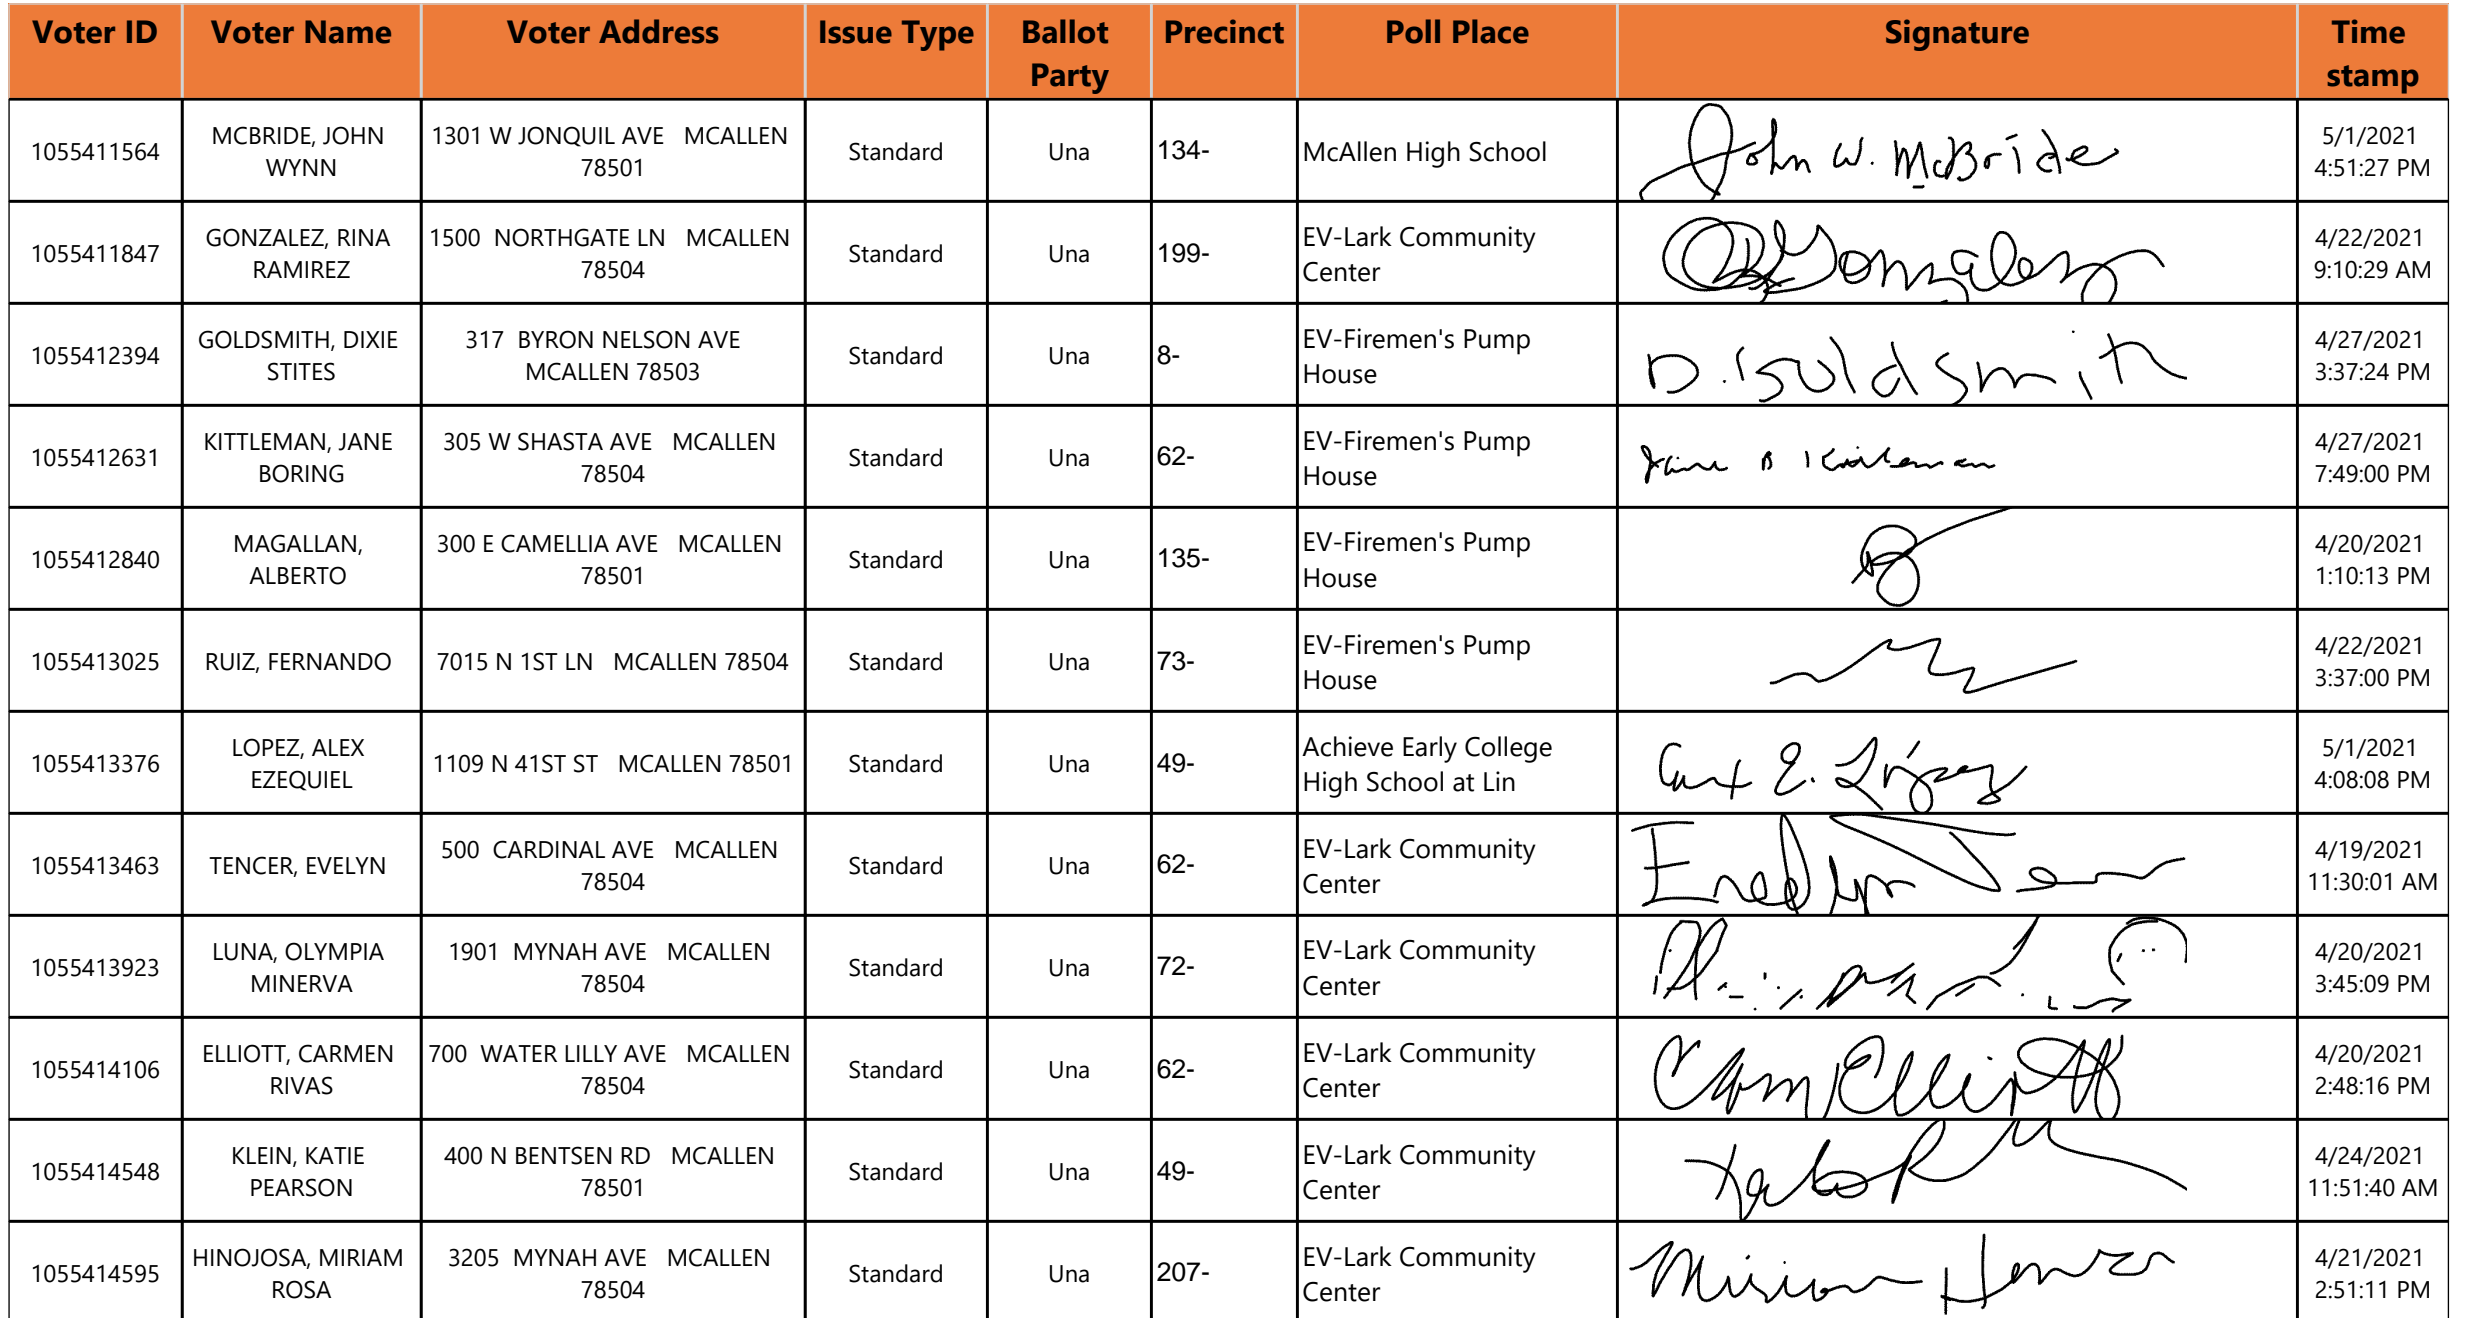 Voter ID Voter Name Voter Address Issue Type Ballot Party Precinct Poll Place Signature Time stamp
1055411564 MCBRIDE, JOHN WYNN 1301 W JONQUIL AVE MCALLEN 78501 Standard Una 134- McAllen High School John W. McBride 5/1/2021 4:51:27 PM
1055411847 GONZALEZ, RINA RAMIREZ 1500 NORTHGATE LN MCALLEN 78504 Standard Una 199- EV-Lark Community Center Gonzalez 4/22/2021 9:10:29 AM
1055412394 GOLDSMITH, DIXIE STITES 317 BYRON NELSON AVE MCALLEN 78503 Standard Una 8- EV-Firemen's Pump House D. Goldsmith 4/27/2021 3:37:24 PM
1055412631 KITTLEMAN, JANE BORING 305 W SHASTA AVE MCALLEN 78504 Standard Una 62- EV-Firemen's Pump House Jane B Kittleman 4/27/2021 7:49:00 PM
1055412840 MAGALLAN, ALBERTO 300 E CAMELLIA AVE MCALLEN 78501 Standard Una 135- EV-Firemen's Pump House 4/20/2021 1:10:13 PM
1055413025 RUIZ, FERNANDO 7015 N 1ST LN MCALLEN 78504 Standard Una 73- EV-Firemen's Pump House 4/22/2021 3:37:00 PM
1055413376 LOPEZ, ALEX EZEQUIEL 1109 N 41ST ST MCALLEN 78501 Standard Una 49- Achieve Early College High School at Lin E. López 5/1/2021 4:08:08 PM
1055413463 TENCER, EVELYN 500 CARDINAL AVE MCALLEN 78504 Standard Una 62- EV-Lark Community Center 4/19/2021 11:30:01 AM
1055413923 LUNA, OLYMPIA MINERVA 1901 MYNAH AVE MCALLEN 78504 Standard Una 72- EV-Lark Community Center 4/20/2021 3:45:09 PM
1055414106 ELLIOTT, CARMEN RIVAS 700 WATER LILLY AVE MCALLEN 78504 Standard Una 62- EV-Lark Community Center Elliott 4/20/2021 2:48:16 PM
1055414548 KLEIN, KATIE PEARSON 400 N BENTSEN RD MCALLEN 78501 Standard Una 49- EV-Lark Community Center 4/24/2021 11:51:40 AM
1055414595 HINOJOSA, MIRIAM ROSA 3205 MYNAH AVE MCALLEN 78504 Standard Una 207- EV-Lark Community Center Miriam 4/21/2021 2:51:11 PM